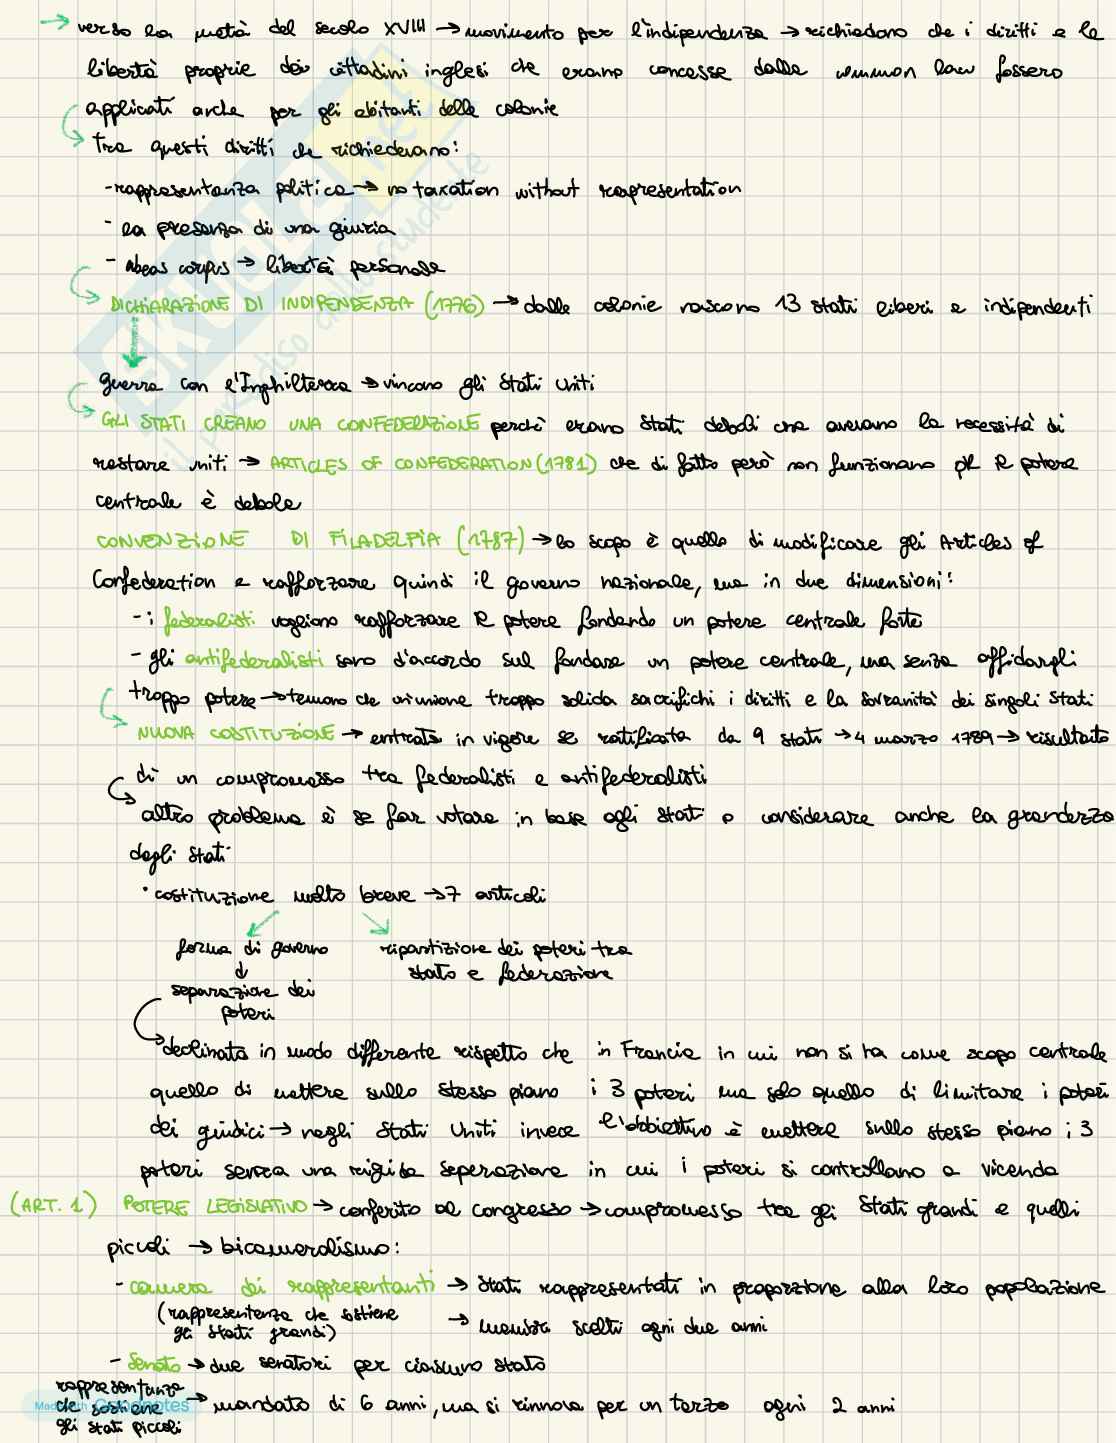 → verso la metà del secolo XVIII → movimento per l'indipendenza → richiedono che i diritti e le
libertà proprie dei cittadini inglesi che erano concesse dalla common law fossero
applicati anche per gli abitanti delle colonie
Tra questi diritti che richiedevano:
- rappresentanza politica → no taxation without rapresentation
- la presenza di una giuria
- abeas corpus → libertà personale
DICHIARAZIONE DI INDIPENDENZA (1776) → dalle colonie nascono 13 stati liberi e indipendenti
guerra con l'Inghilterra → vincono gli Stati Uniti
GLI STATI CREANO UNA CONFEDERAZIONE perchè erano Stati deboli che avevano la necessità di
restare uniti → ARTICLES OF CONFEDERATION (1781) che di fatto però non funzionano pk il potere
centrale è debole
CONVENZIONE DI FILADELFIA (1787) → lo scopo è quello di modificare gli Articles of
Confederation e rafforzare quindi il governo nazionale, ma in due dimensioni:
- i federalisti vogliono rafforzare il potere fondando un potere centrale forte
- gli antifederalisti sono d'accordo sul fondare un potere centrale, ma senza affidargli
troppo potere → temono che un'unione troppo solida sacrifichi i diritti e la sovranità dei singoli Stati
NUOVA COSTITUZIONE → entrata in vigore se ratificata da 9 stati → 4 marzo 1789 → risultato
di un compromesso tra federalisti e antifederalisti
altro problema è se far votare in base agli stati o considerare anche la grandezza
degli stati
• costituzione molto breve → 7 articoli
forma di governo ripartizione dei poteri tra
↓ stato e federazione
separazione dei
poteri
declinata in modo differente rispetto che in Francia in cui non si ha come scopo centrale
quello di mettere sullo stesso piano i 3 poteri ma solo quello di limitare i poteri
dei giudici → negli Stati Uniti invece l'obbiettivo è mettere sullo stesso piano i 3
poteri senza una rigida separazione in cui i poteri si controllano a vicenda
(ART. 1) POTERE LEGISLATIVO → conferito al congresso → compromesso tra gli Stati grandi e quelli
piccoli → bicameralismo:
- camera dei rappresentanti → Stati rappresentati in proporzione alla loro popolazione
(rappresentanza che sostiene
gli Stati grandi) → membri scelti ogni due anni
- Senato → due senatori per ciascuno stato
rappresentanza
che sostiene → mandato di 6 anni, ma si rinnova per un terzo ogni 2 anni
gli stati piccoli